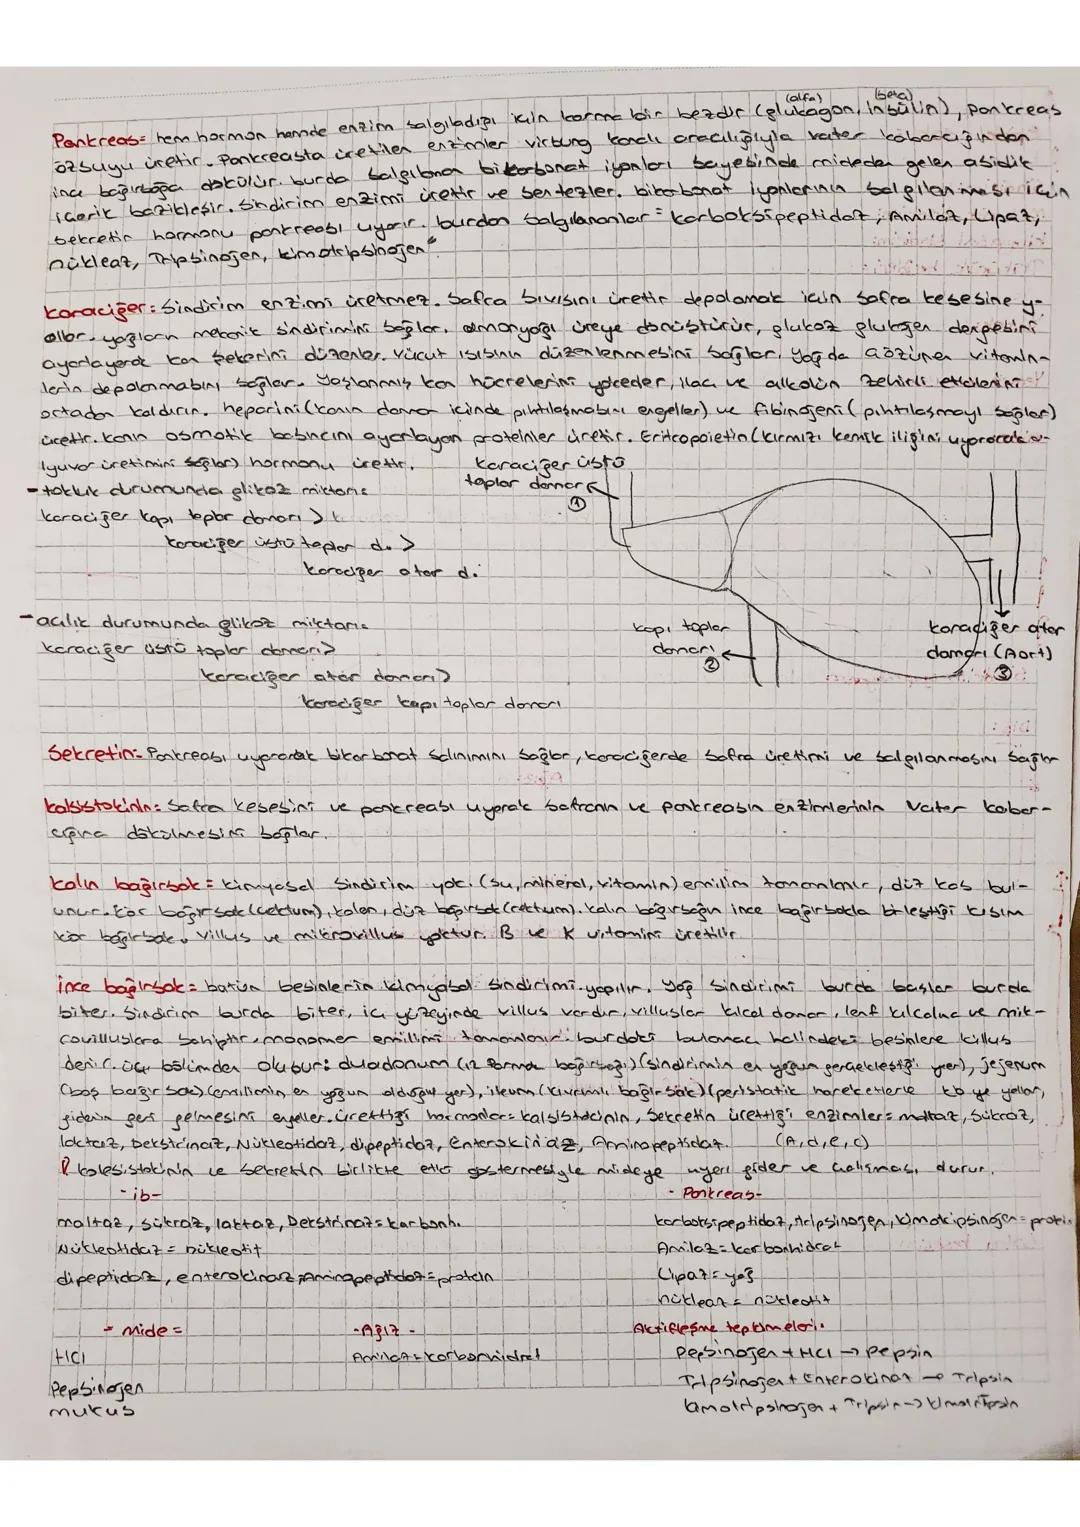 (alfa) (beta)
Pankreas= hem hormon hemde enzim salgıladığı için karma bir bezdir (glukagon, insülin), pankreas
özsuyu üretir. Pankreasta üretilen enzimler virsung kanalı aracılığıyla vater kabarcığından
ince bağırsağa dökülür. burda salgılanan bikarbonat iyonları sayesinde mideden gelen asidik
içerik bazikleşir. Sindirim enzimi üretir ve sentezler. bikarbonat iyonlarının salgılanması için
sekretin hormonu pankreası uyarır. burdan salgılananlar = karboksipeptidaz, Amilaz, Lipaz,
nükleaz, Tripsinojen, kimotripsinojen
karaciğer: Sindirim enzimi üretmez. Safra sıvısını üretir depolamak için safra kesesine y-
ollar. yağların mekanik sindirimini sağlar. amonyağı üreye dönüştürür, glukoz glukojen dengesini
ayarlayarak kan şekerini düzenler. vücut ısısının düzenlenmesini sağlar. Yağda çözünen vitamin-
lerin depolanmasını sağlar. Yaşlanmış kan hücrelerini yokeder, ilaç ve alkolün zehirli etkilerini
ortadan kaldırır. heparini (kanın damar içinde pıhtılaşmasını engeller) ve fibinojeni (pıhtılaşmayı sağlar)
üretir. kanın osmotik basıncını ayarlayan proteinler üretir. Eritropoietin (kırmızı kemik iliğini uyararak a-
lyuvar üretimini sağlar) hormonu üretir.
karaciğer üstü
toplar damarı
①
- tokluk durumunda glikoz miktarı=
karaciğer kapı toplar damarı >
karaciğer üstü toplar d. >
karaciğer atar d.
- açlık durumunda glikoz miktarı=
karaciğer üstü toplar damarı>
karaciğer atar damarı>
karaciğer kapı toplar damarı
kapı toplar
damarı
②
karaciğer atar
damarı (Aort)
③
Sekretin= Pankreası uyararak bikarbonat salınımını sağlar, karaciğerde safra üretimi ve salgılanmasını sağlar
kolsistokinin= Safra kesesini ve pankreası uyarak safranın ve pankreasın enzimlerinin vater kabar-
cığına dökülmesini sağlar.
kalın bağırsak= kimyasal sindirim yok. (su, mineral, vitamin) emilim tamamlanır, düz kas bul-
unur. kör bağırsak (çekum), kolon, düz bağırsak (rektum). kalın bağırsağın ince bağırsakla birleştiği kısım
kör bağırsak. villus ve mikrovillus yoktur. B ve K vitamini üretilir
ince bağırsak= bütün besinlerin kimyasal sindirimi yapılır. Yağ sindirimi burda başlar burda
biter. Sindirim burda biter, iç yüzeyinde villus vardır, villuslar kılcal damar, lenf kılcalına ve mik-
rovilluslara sahiptir. monomer emilimi tamamlanır. burdaki bulamaç halindeki besinlere killus
denir. üç bölümden oluşur: duodonum (12 parmak bağırsağı) (sindirimin en yoğun gerçekleştiği yer), jejenum
(boş bağırsak) (emilimin en yoğun olduğu yer), ileum (kıvrımlı bağırsak) (peristatik hareketlerle kb ye yollar,
gidenin geri gelmesini engeller. ürettiği hormonlar= kalsistokinin, Sekretin ürettiği enzimler= maltaz, Sükroz,
laktaz, Dekstrinaz, Nükleotidaz, dipeptidaz, Enterokinaz, Aminopeptidaz. (A,d,e,c)
kolesistokinin ve Sekretin birlikte etki göstermesiyle mideye uyarı gider ve çalışması durur.
- ib -
maltaz, sükraz, laktaz, Dekstrinaz= karbonh.
Nükleotidaz = nükleotit
dipeptidaz, enterokinaz, Aminopeptidaz= protein
- Pankreas-
karboksipeptidaz, tripsinojen, kimotripsinojen= protein
Amilaz= karbonhidrat
Lipaz= yağ
nükleaz = nükleotit
- Mide =
HCl
Pepsinojen
mukus
- Ağız -
Amilaz= karbonhidrat
Aktifleşme tepkimeleri:
Pepsinojen + HCl → Pepsin
Tripsinojen + Enterokinaz → Tripsin
kimotripsinojen + Tripsin → kimotripsin